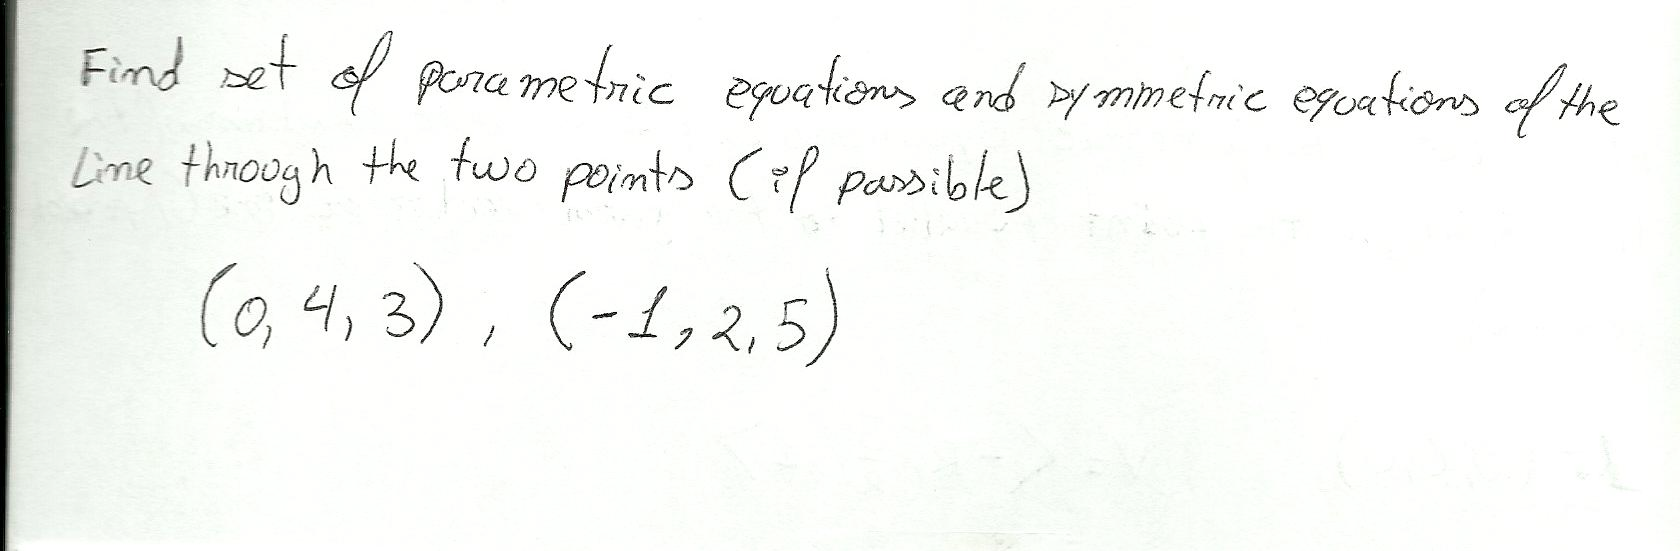 Find set of parametric equations and symmetric equations of the
Line through the two points (if possible)
(0, 4, 3), (-1, 2, 5)